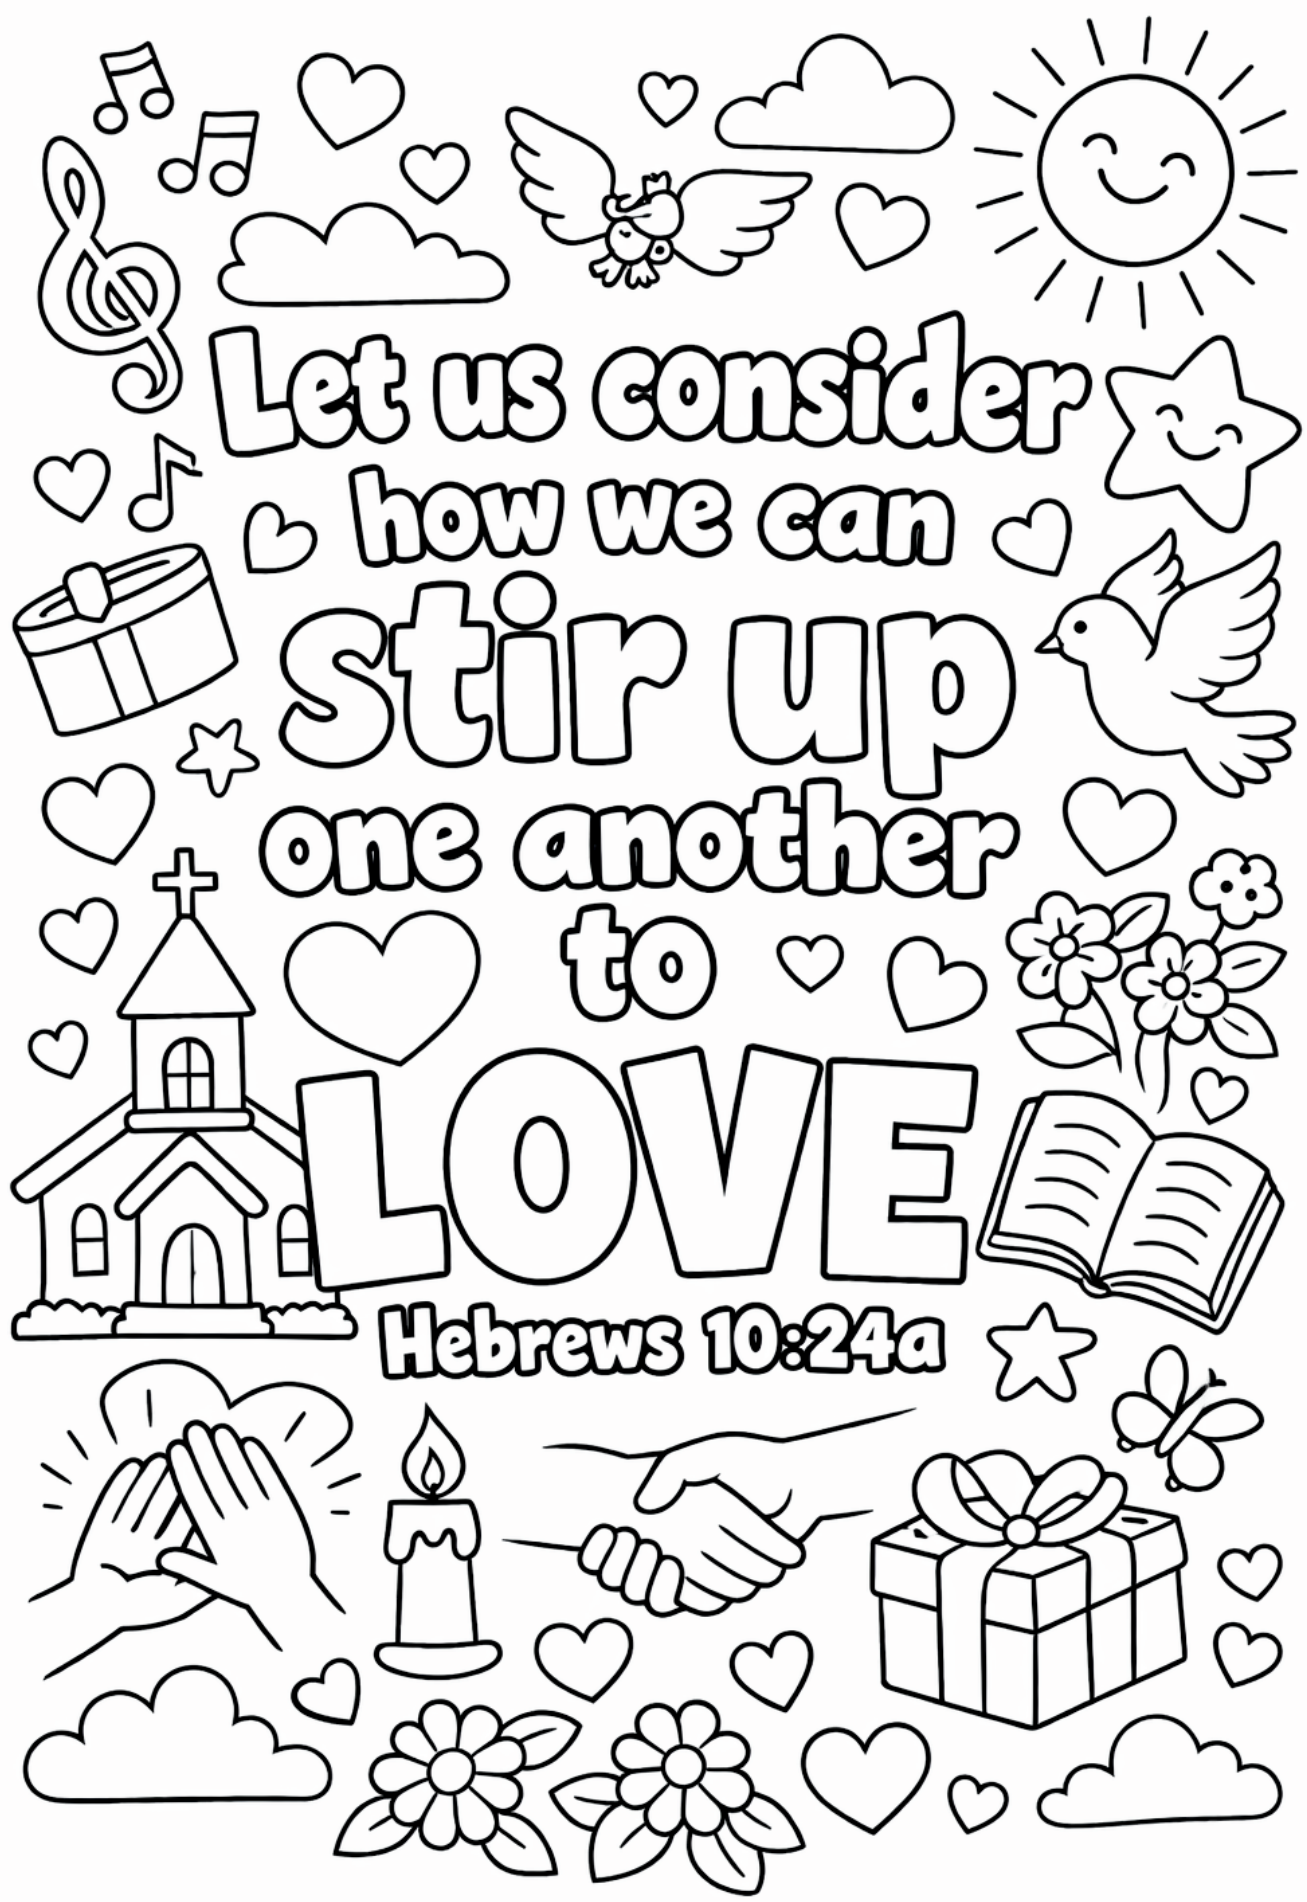 Let us consider
how we can
stir up
one another
to
LOVE
Hebrews 10:24a